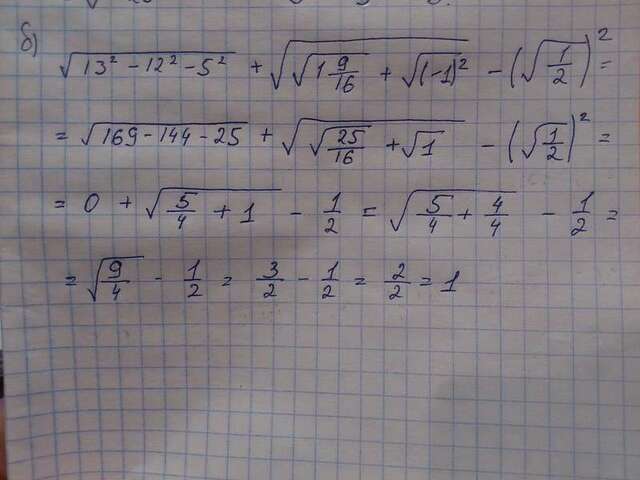 б)
√(13² - 12² - 5²) + √(√(1 9/16) + √((-1)²)) - (√(1/2))² =
= √(169 - 144 - 25) + √(√(25/16) + √1) - (√(1/2))² =
= 0 + √(5/4 + 1) - 1/2 = √(5/4 + 4/4) - 1/2 =
= √(9/4) - 1/2 = 3/2 - 1/2 = 2/2 = 1